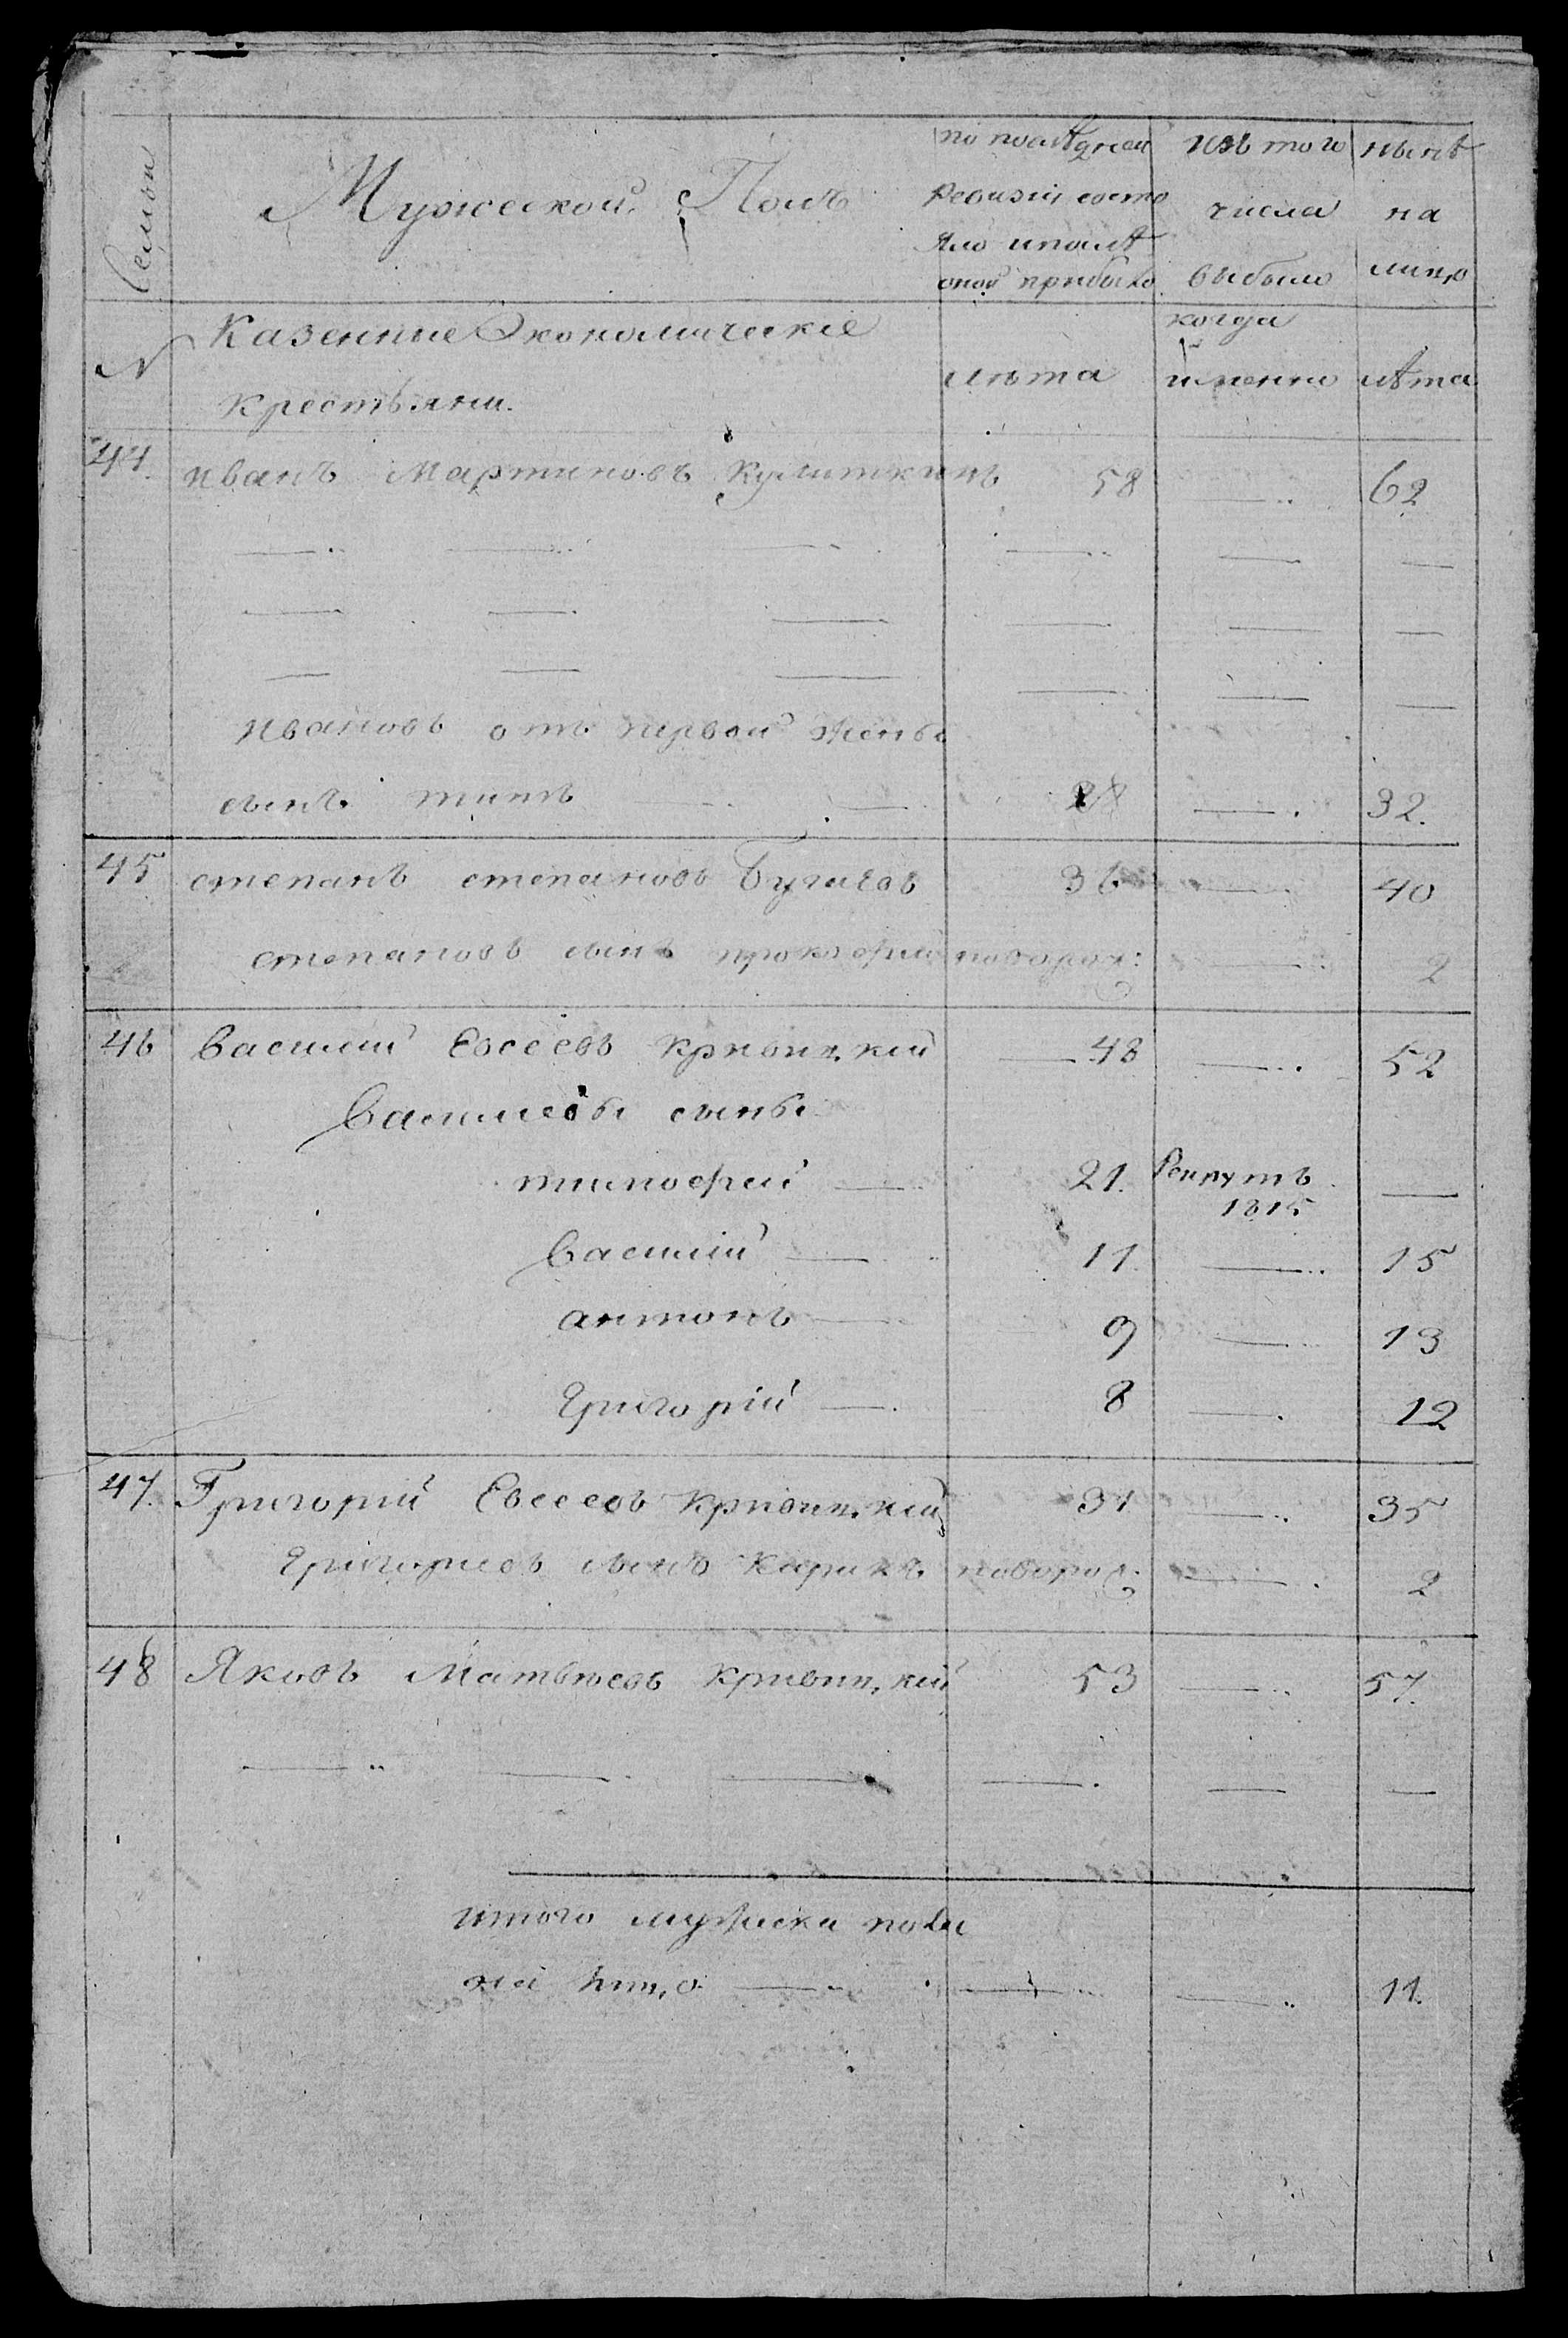 семьи
Мужеской Полъ
по последней
ревизии состо
яло и после
оной прибыло
изъ того
числа
выбыло
ныне
на
лицо
N
Казенные Экономическіе
крестьяни.
лѣта
когда
именно
лѣта
44. иванъ Мартиновъ 58 — 62
ивановъ отъ первой жены
сынъ титъ — 28 — 32.
45 степанъ степановъ 36 — 40
степановъ сынъ прокофей новорож: — 2
46 Василий Евсеевъ кривицкий — 48 — 52
Василиевы сыны
тимофей — 21. Рекрутъ 1815 —
Василий — 11 — 15
антонъ — 9 — 13
Григорий — 8 — 12
47. Григорий Евсеевъ кривицкий 31 — 35
Григориевъ сынъ новорож: — 2
48 Яковъ Матвѣевъ кривицкий 53 — 57.
итого мужска пола
на лицо — — — 11.